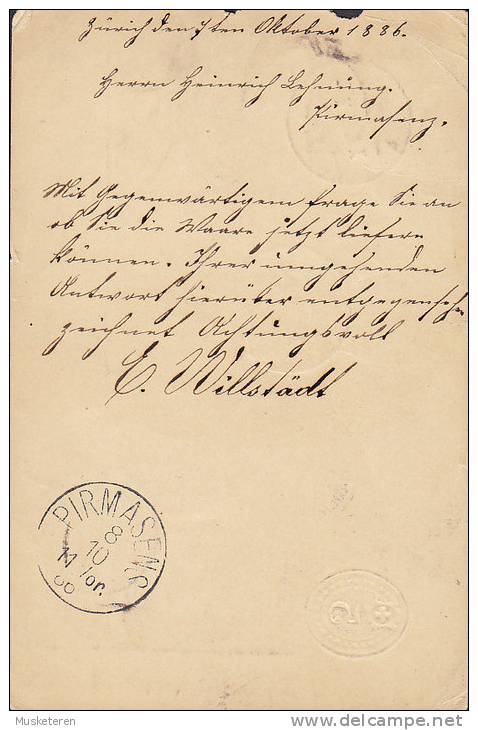 Zürich den 7ten Oktober 1886.
Herrn Heinrich Lehnung.
Pirmasenz.
Mit Gegenwärtigem frage Sie an
ob Sie die Waare jetzt liefern
können. Ihrer umgehenden
Antwort hierüber entgegensehe
zeichnet Achtungsvoll
E. Willstädt
PIRMASENS
8
10
Vor.
Musketeren
delcampe.net